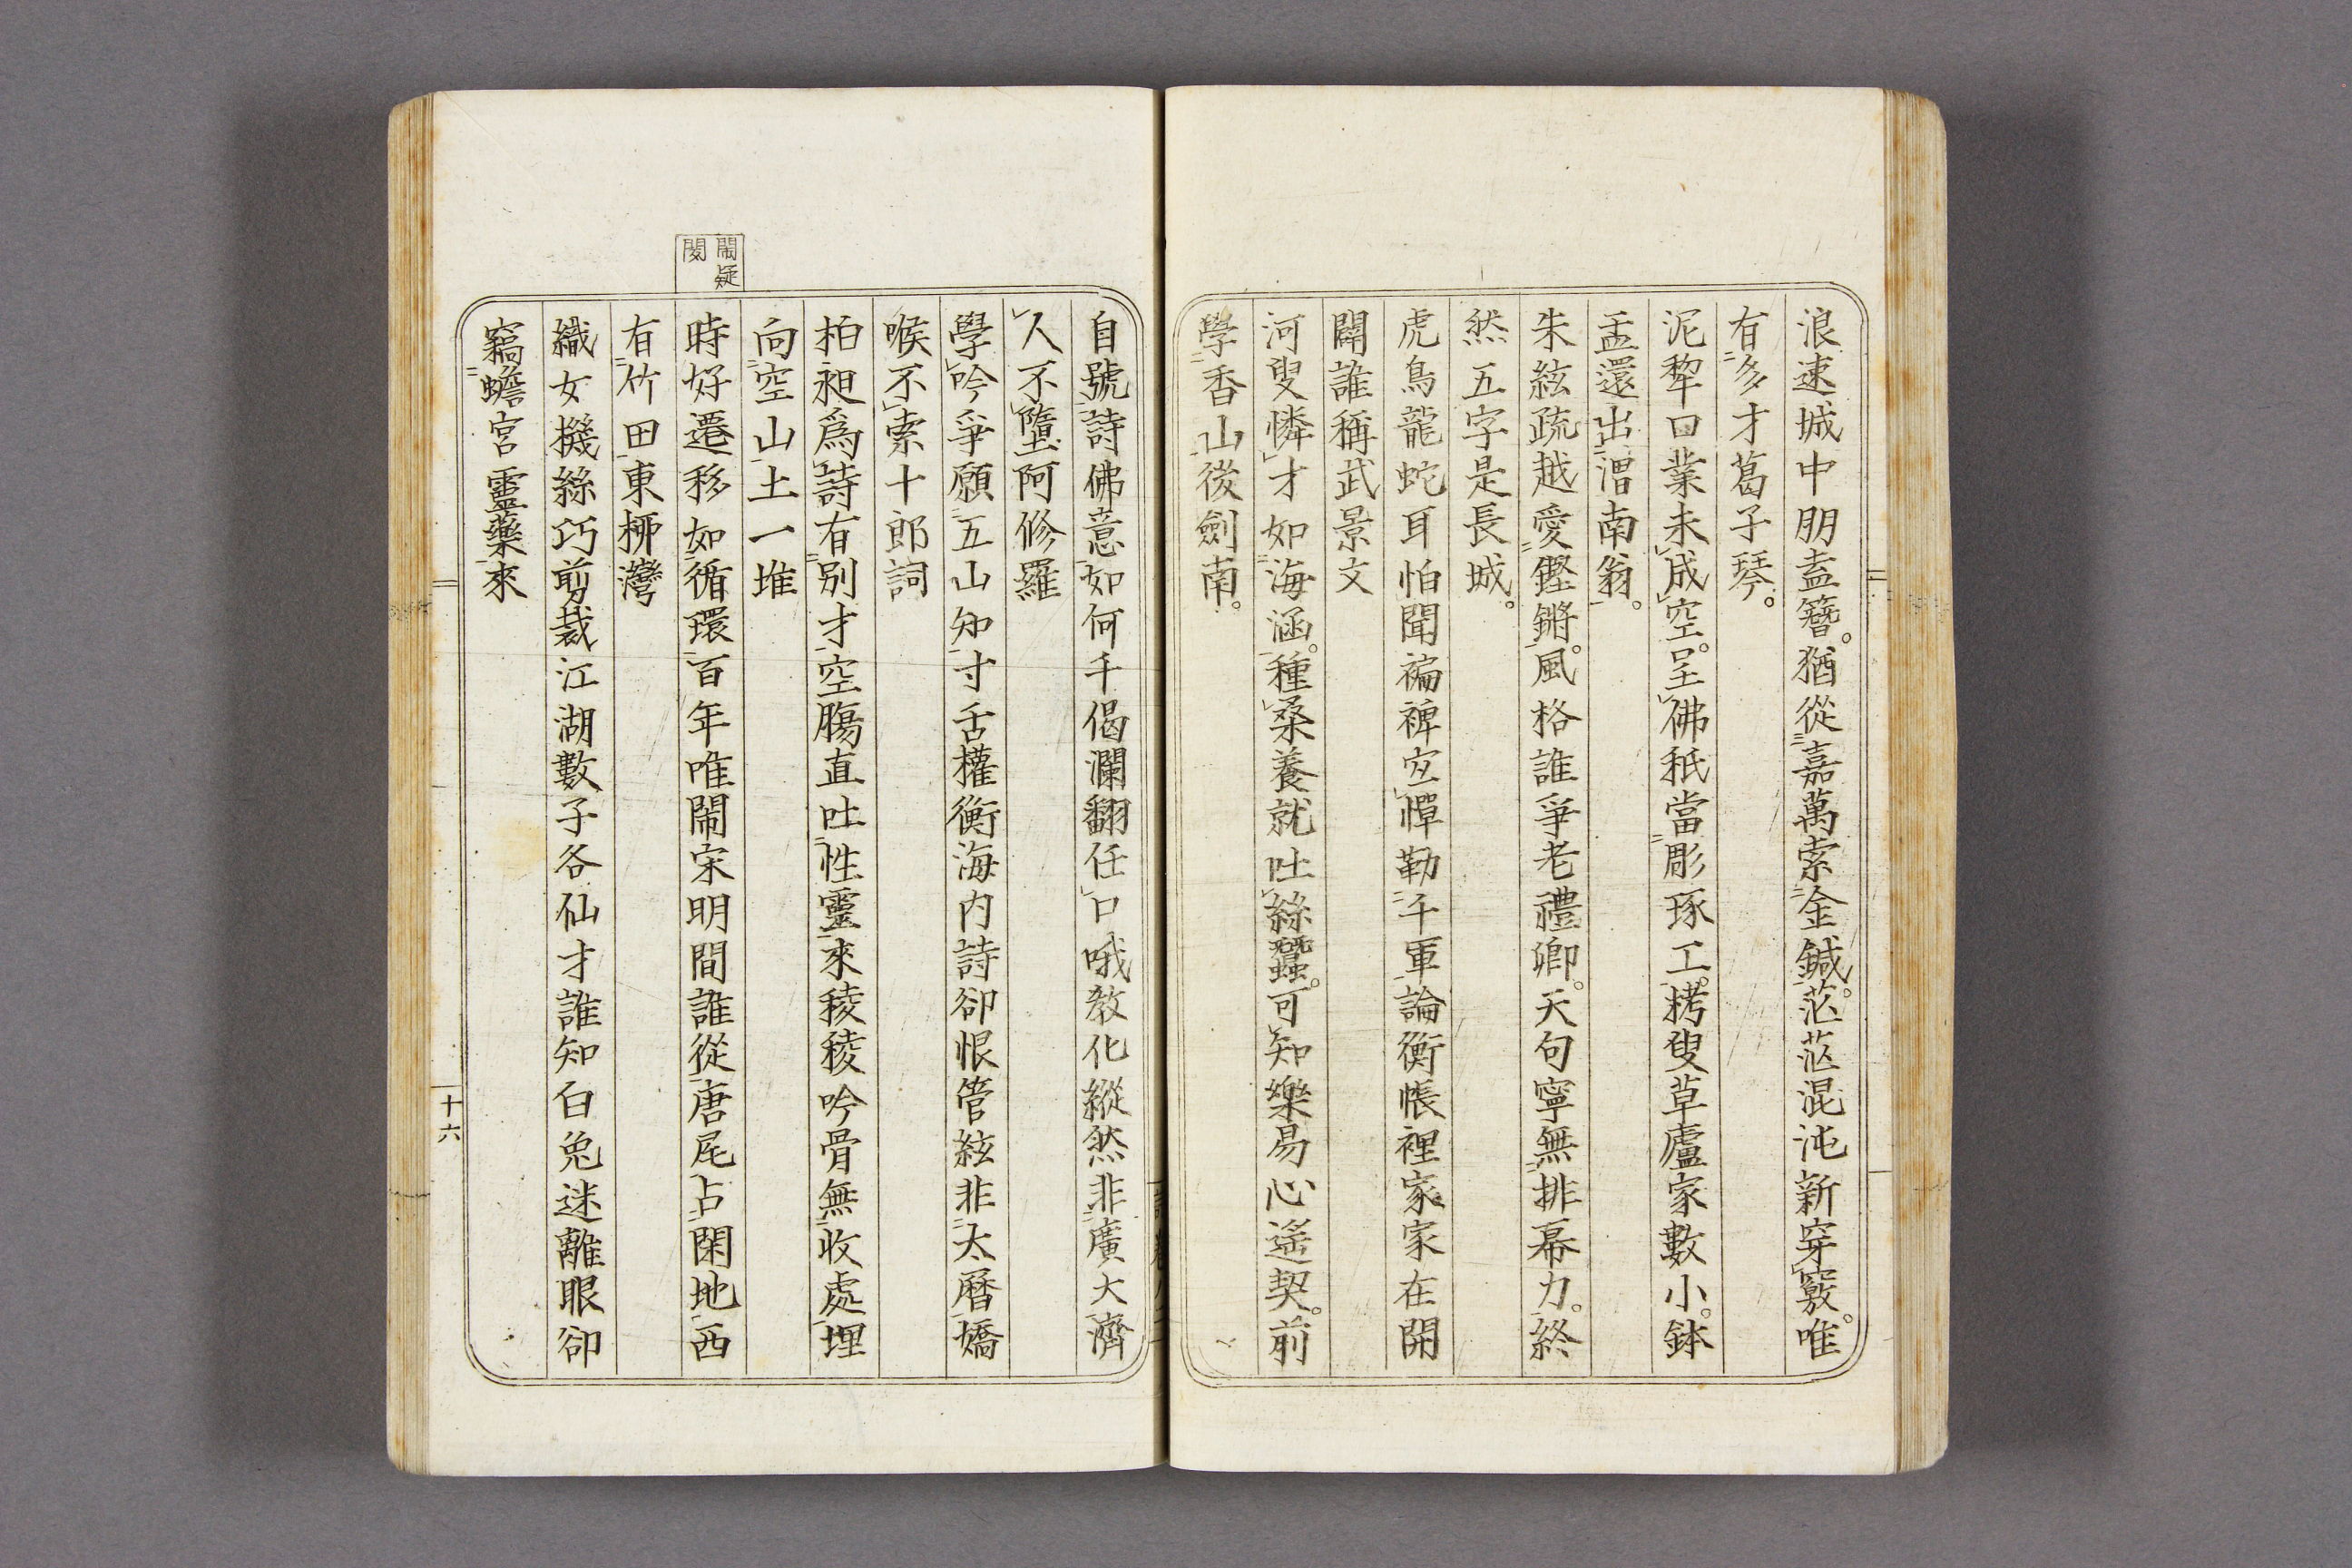 浪速城中朋盍簪。猶從嘉萬索金鍼。茫茫混沌新穿竅。唯
有多才葛子琴。
泥犂口業未成空。呈佛秖當彫琢工。栲叟草廬家數小。鉢
盂還出渭南翁。
朱絃疏越愛鏗鏘。風格誰爭老禮卿。天句寧無排奡力。終
然五字是長城。
虎鳥龍蛇耳怕聞褊裨寔憚勒千軍論衡帳裡家家在開
闢誰稱武景文
河叟憐才如海涵。種桑養就吐絲蠶。可知樂易心遙契。前
學香山後劍南。
自號詩佛意如何千偈瀾翻任口哦教化縱然非廣大濟
人不墮阿修羅
學吟爭願五山知寸舌權衡海內詩卻恨管絃非大曆嬌
喉不索十郎詞
柏昶爲詩有別才空膓直吐性靈來稜稜吟骨無收處埋
向空山土一堆
閙疑
閱
時好遷移如循環百年唯閙宋明間誰從唐尾占閑地西
有竹田東栁灣
織女機絲巧剪裁江湖數子各仙才誰知白兔迷離眼卻
竊蟾宮靈藥來
十六